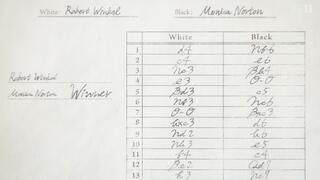 White: Robert Winkel Black: Monica Norton
White Black
1 d4 Nf6
2 c4 e6
3 Nc3 Bb4
4 e3 O-O
5 Bd3 c5
6 Nf3 Nc6
7 O-O Bxc3
8 bxc3 d6
9 Nd2 b6
10 Nb3 e5
11 f4 e4
12 Be2 Qd8
13 h3 Ne9
Robert Winkel
Monica Norton Winner